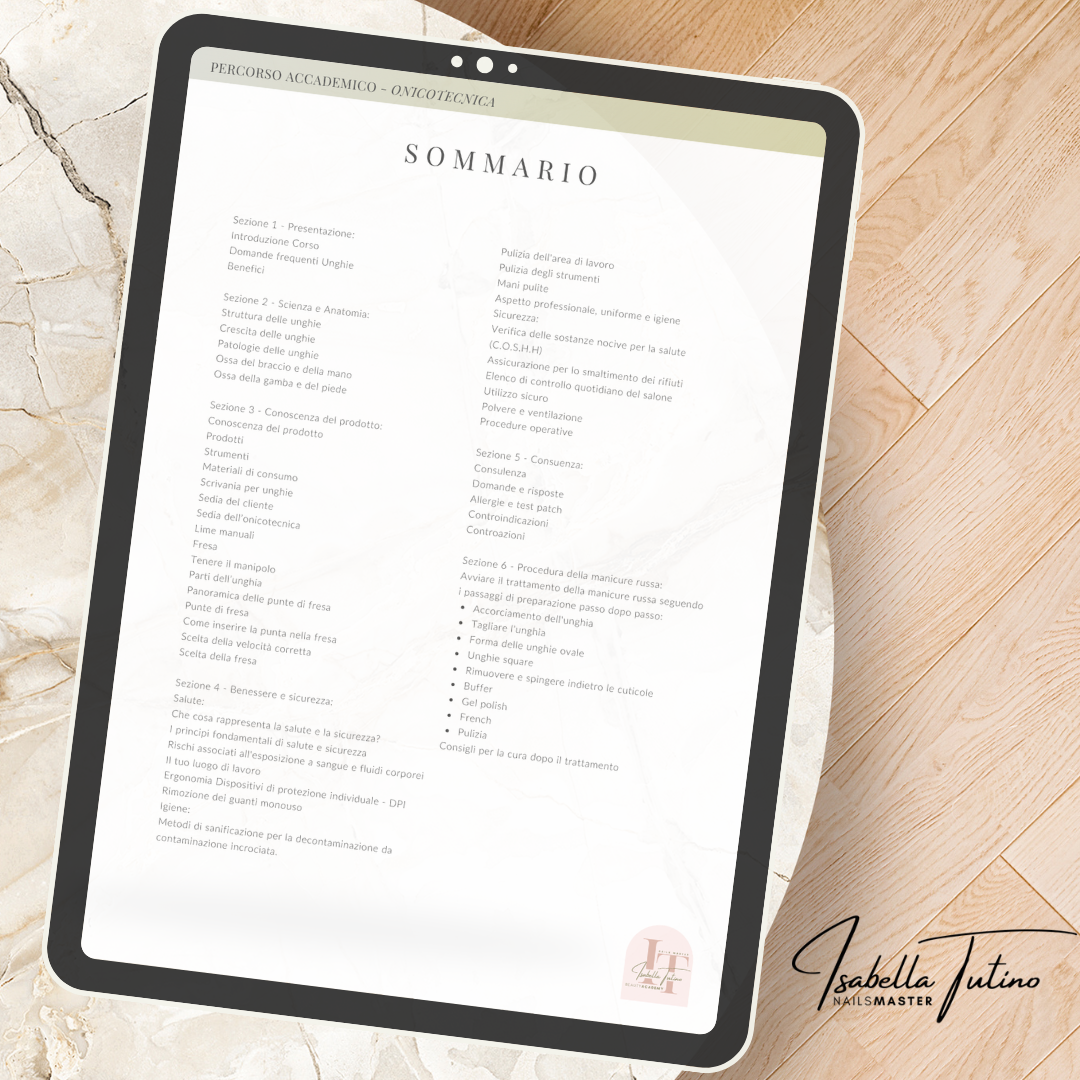 PERCORSO ACCADEMICO - ONICOTECNICA
SOMMARIO
Sezione 1 - Presentazione:
Introduzione Corso
Domande frequenti Unghie
Benefici
Sezione 2 - Scienza e Anatomia:
Struttura delle unghie
Crescita delle unghie
Patologie delle unghie
Ossa del braccio e della mano
Ossa della gamba e del piede
Sezione 3 - Conoscenza del prodotto:
Conoscenza del prodotto
Prodotti
Strumenti
Materiali di consumo
Scrivania per unghie
Sedia del cliente
Sedia dell'onicotecnica
Lime manuali
Fresa
Tenere il manipolo
Parti dell'unghia
Panoramica delle punte di fresa
Punte di fresa
Come inserire la punta nella fresa
Scelta della velocità corretta
Scelta della fresa
Sezione 4 - Benessere e sicurezza:
Salute:
Che cosa rappresenta la salute e la sicurezza?
I principi fondamentali di salute e sicurezza
Rischi associati all'esposizione a sangue e fluidi corporei
Il tuo luogo di lavoro
Ergonomia Dispositivi di protezione individuale - DPI
Rimozione dei guanti monouso
Igiene:
Metodi di sanificazione per la decontaminazione da
contaminazione incrociata.
Pulizia dell'area di lavoro
Pulizia degli strumenti
Mani pulite
Aspetto professionale, uniforme e igiene
Sicurezza:
Verifica delle sostanze nocive per la salute
(C.O.S.H.H)
Assicurazione per lo smaltimento dei rifiuti
Elenco di controllo quotidiano del salone
Utilizzo sicuro
Polvere e ventilazione
Procedure operative
Sezione 5 - Consuenza:
Consulenza
Domande e risposte
Allergie e test patch
Controindicazioni
Controazioni
Sezione 6 - Procedura della manicure russa:
Avviare il trattamento della manicure russa seguendo
i passaggi di preparazione passo dopo passo:
• Accorciamento dell'unghia
• Tagliare l'unghia
• Forma delle unghie ovale
• Unghie square
• Rimuovere e spingere indietro le cuticole
• Buffer
• Gel polish
• French
• Pulizia
Consigli per la cura dopo il trattamento
IT
Isabella Tutino
BEAUTYACADEMY
Isabella Tutino
NAILSMASTER